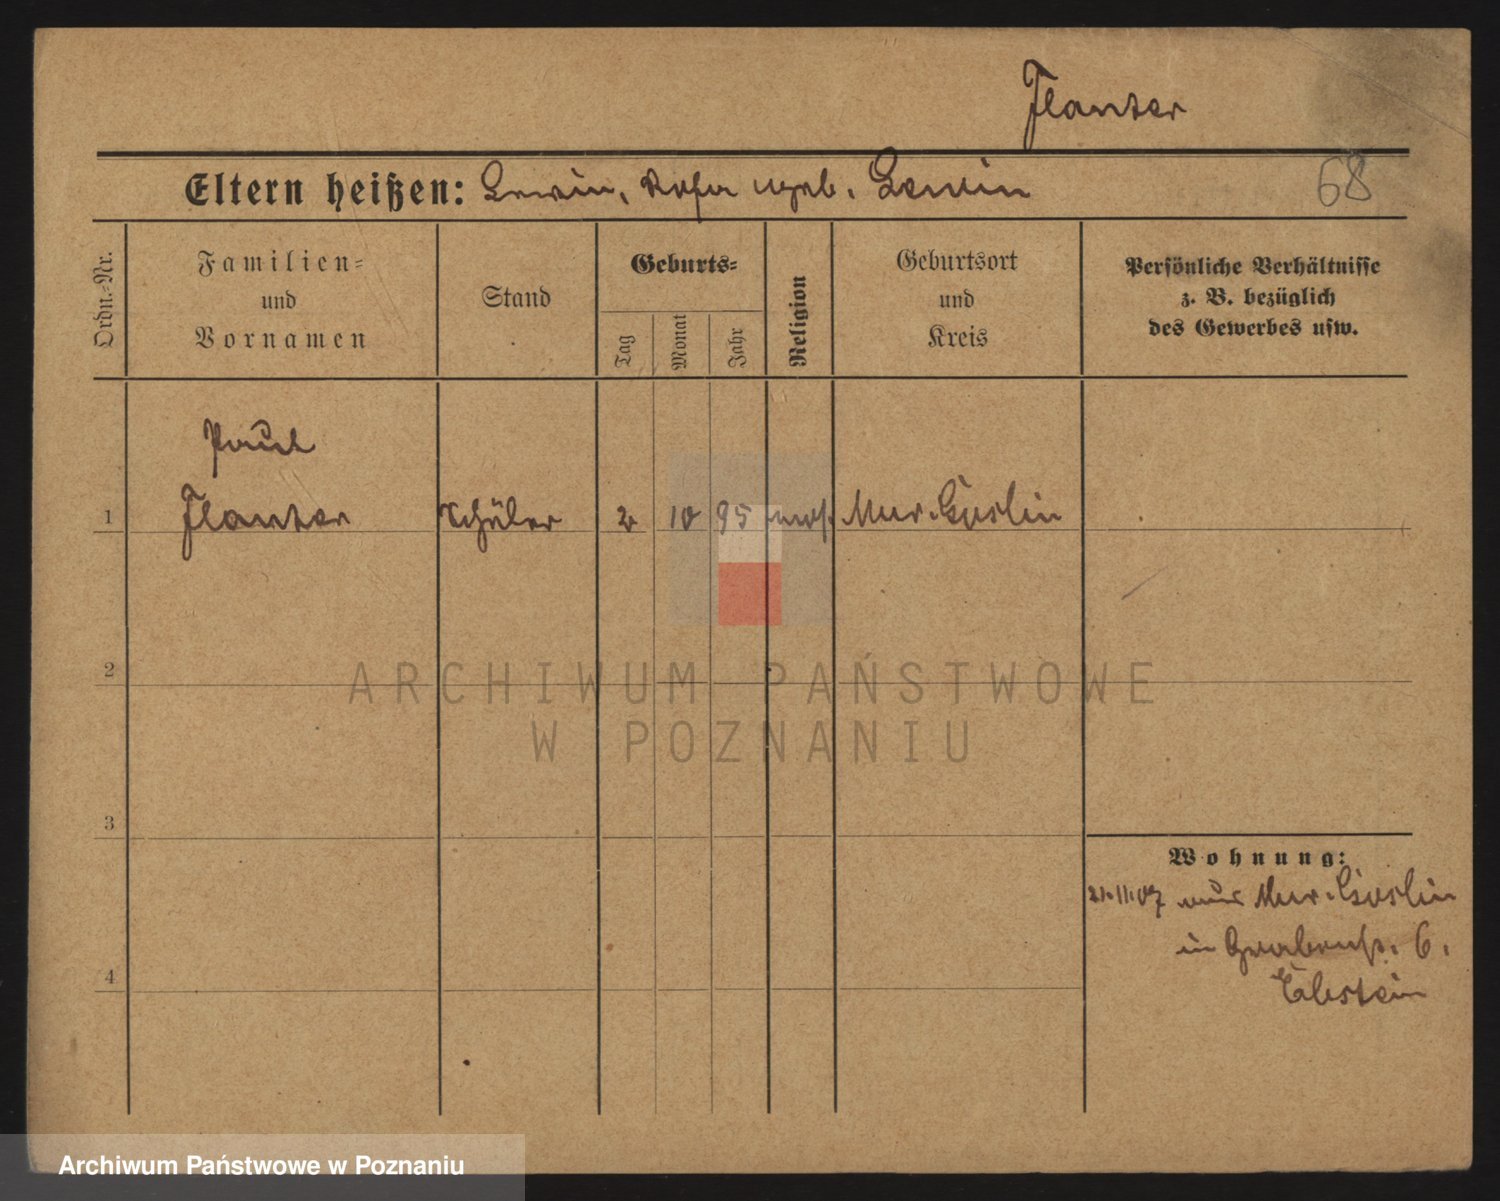 Flanter
Eltern heißen: Lewin, Rosa geb. Lewin
68
Ordn.-Nr.
Familien-
und
Vornamen
Stand
Geburts-
Tag
Monat
Jahr
Religion
Geburtsort
und
Kreis
Persönliche Verhältnisse
z. B. bezüglich
des Gewerbes usw.
Paul
1 Flanter Schüler 2 10 95 mos. Mur. Goslin
2
ARCHIWUM PAŃSTWOWE
W POZNANIU
3
Wohnung:
21.11.07 aus Mur. Goslin
4 in Grabenstr. 6.
Archiwum Państwowe w Poznaniu